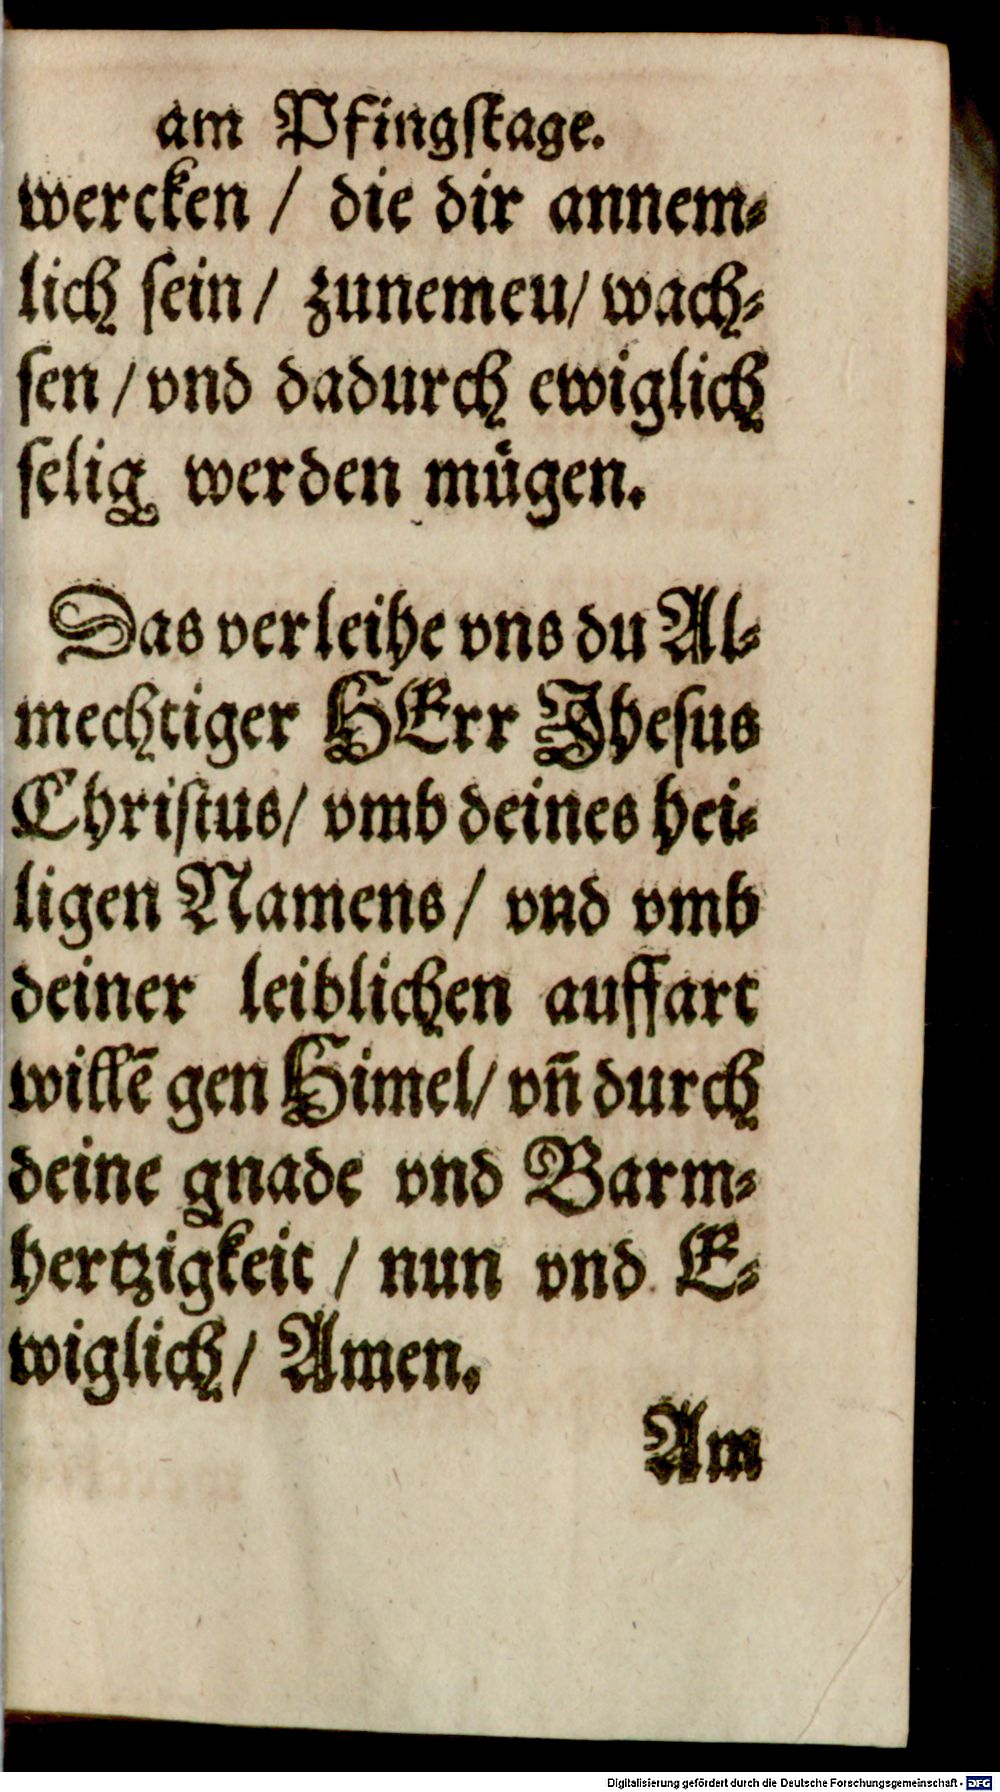 am Pfingstage.
wercken / die dir annem⸗
lich sein / zunemeu / wach⸗
sen / vnd dadurch ewiglich
selig werden mügen.
Das verleihe vns du Al⸗
mechtiger HErr Jhesus
Christus / vmb deines hei⸗
ligen Namens / vnd vmb
deiner leiblichen auffart
willē gen Himel / vn̄ durch
deine gnade vnd Barm⸗
hertzigkeit / nun vnd E⸗
wiglich / Amen.
Am
Digitalisierung gefördert durch die Deutsche Forschungsgemeinschaft - DFG